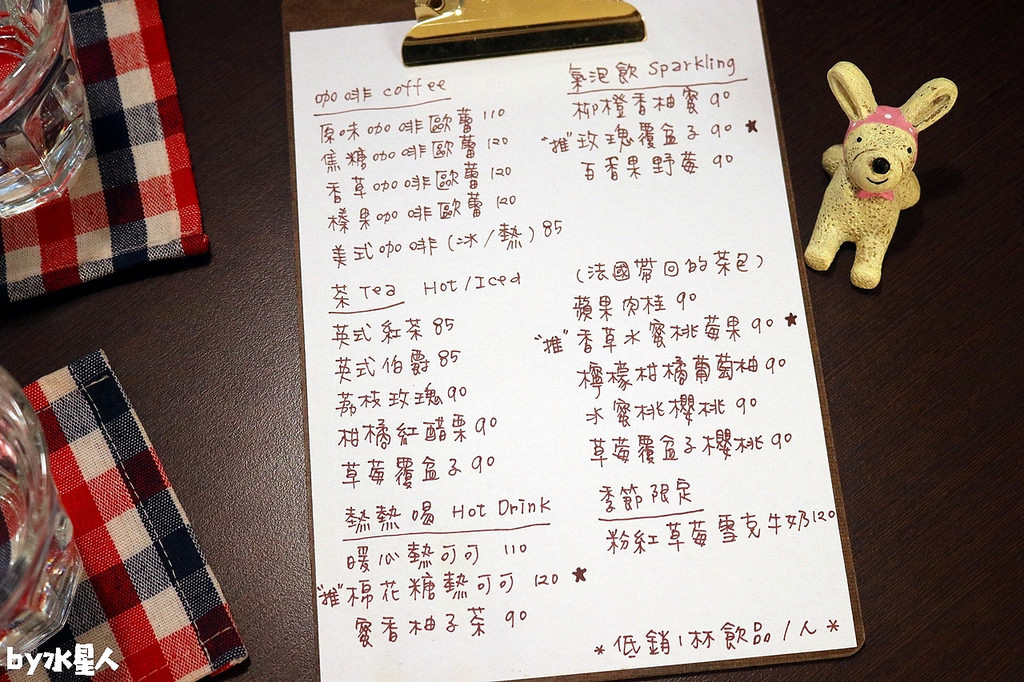 咖啡 coffee
原味咖啡歐蕾 110
焦糖咖啡歐蕾 120
香草咖啡歐蕾 120
榛果咖啡歐蕾 120
美式咖啡(冰/熱) 85
茶 Tea Hot/Iced
英式紅茶 85
英式伯爵 85
荔枝玫瑰 90
柑橘紅醋栗 90
草莓覆盆子 90
熱熱喝 Hot Drink
暖心熱可可 110
"推"棉花糖熱可可 120 ★
蜜香柚子茶 90
氣泡飲 Sparkling
柳橙香柚蜜 90
"推"玫瑰覆盆子 90 ★
百香果野莓 90
(法國帶回的茶包)
蘋果肉桂 90
"推"香草水蜜桃莓果 90 ★
檸檬柑橘葡萄柚 90
水蜜桃櫻桃 90
草莓覆盆子櫻桃 90
季節限定
粉紅草莓雪克牛奶 120
*低銷1杯飲品/人*
by水星人